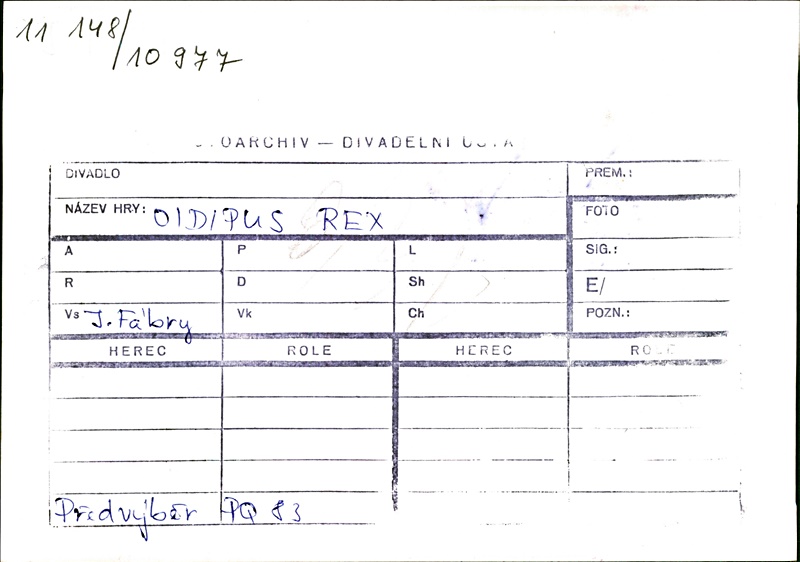 11 148/
10 977
OARCHIV — DIVADELNÍ
DIVADLO
PREM.:
NÁZEV HRY: OIDIPUS REX
FOTO
A P L SIG.:
R D Sh E/
Vs J. Fábry Vk Ch POZN.:
HEREC ROLE HEREC ROLE
Předvýběr PQ 83